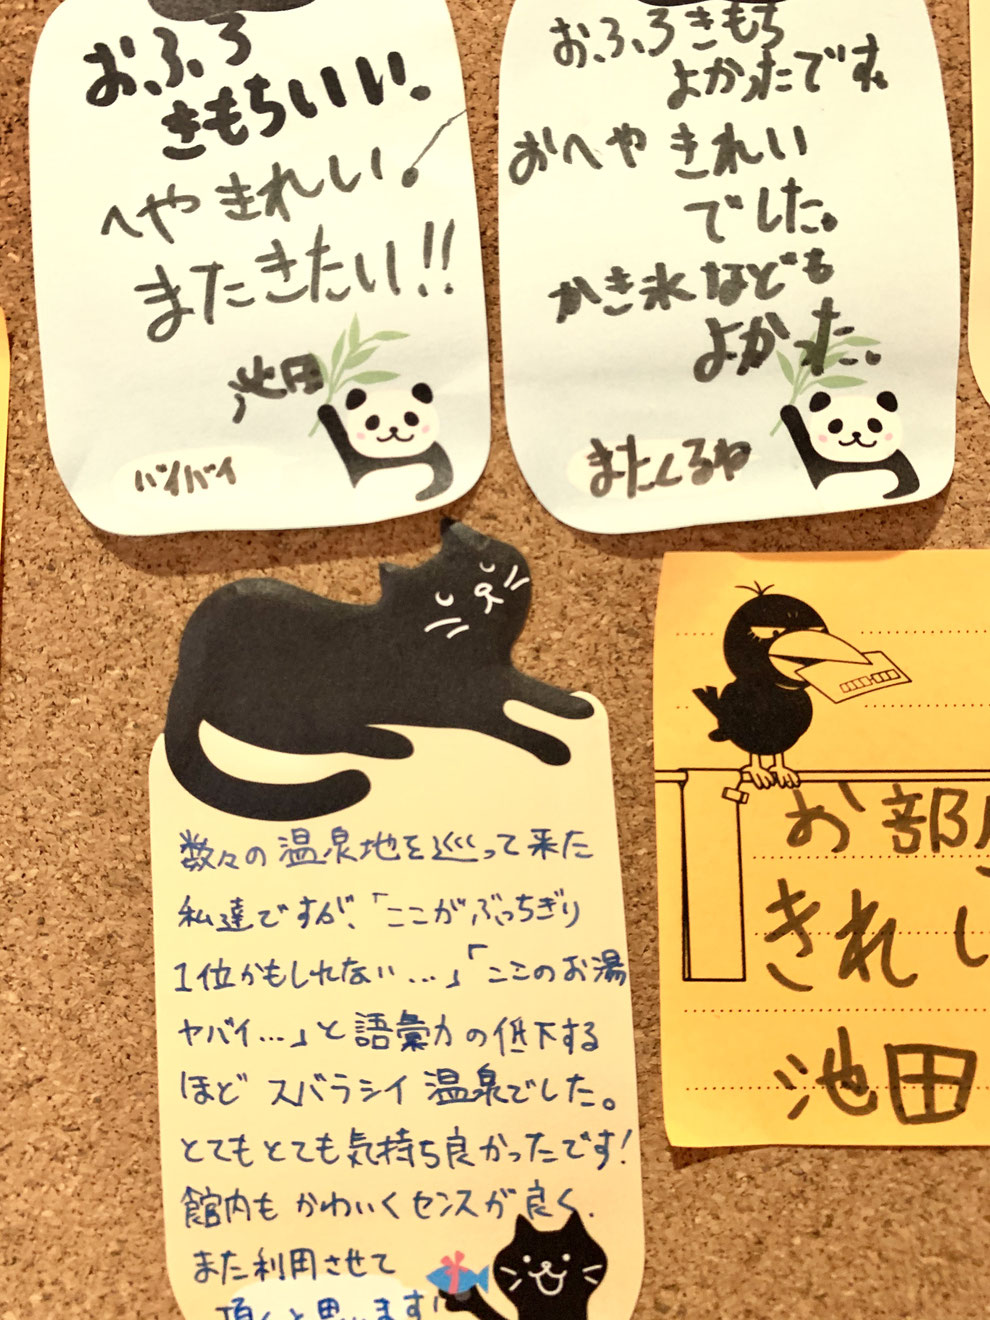 おふろ
きもちいい。
へや きれい。
またきたい!!
池田
バイバイ
おふろきもち
よかったです。
おへや きれい
でした。
かき氷なども
よかった。
またくるね
数々の温泉地を巡って来た
私達ですが、「ここがぶっちぎり
1位かもしれない…」「ここのお湯
ヤバイ…」と語彙力の低下する
ほど スバラシイ 温泉でした。
とてもとても気持ち良かったです!
館内も かわいくセンスが良く、
また利用させて
頂くと思います!
お部
きれい
池田